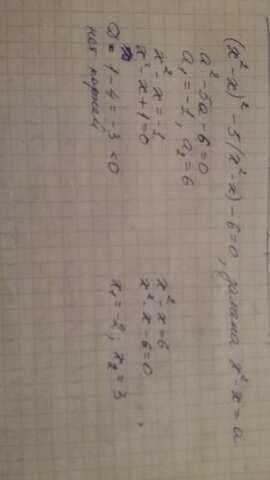 (x² - x)² - 5(x² - x) - 6 = 0, замена x² - x = a
a² - 5a - 6 = 0
a₁ = -1, a₂ = 6
x² - x = -1
x² - x + 1 = 0
D = 1 - 4 = -3 < 0
нет корней
x² - x = 6
x² - x - 6 = 0
x₁ = -2; x₂ = 3